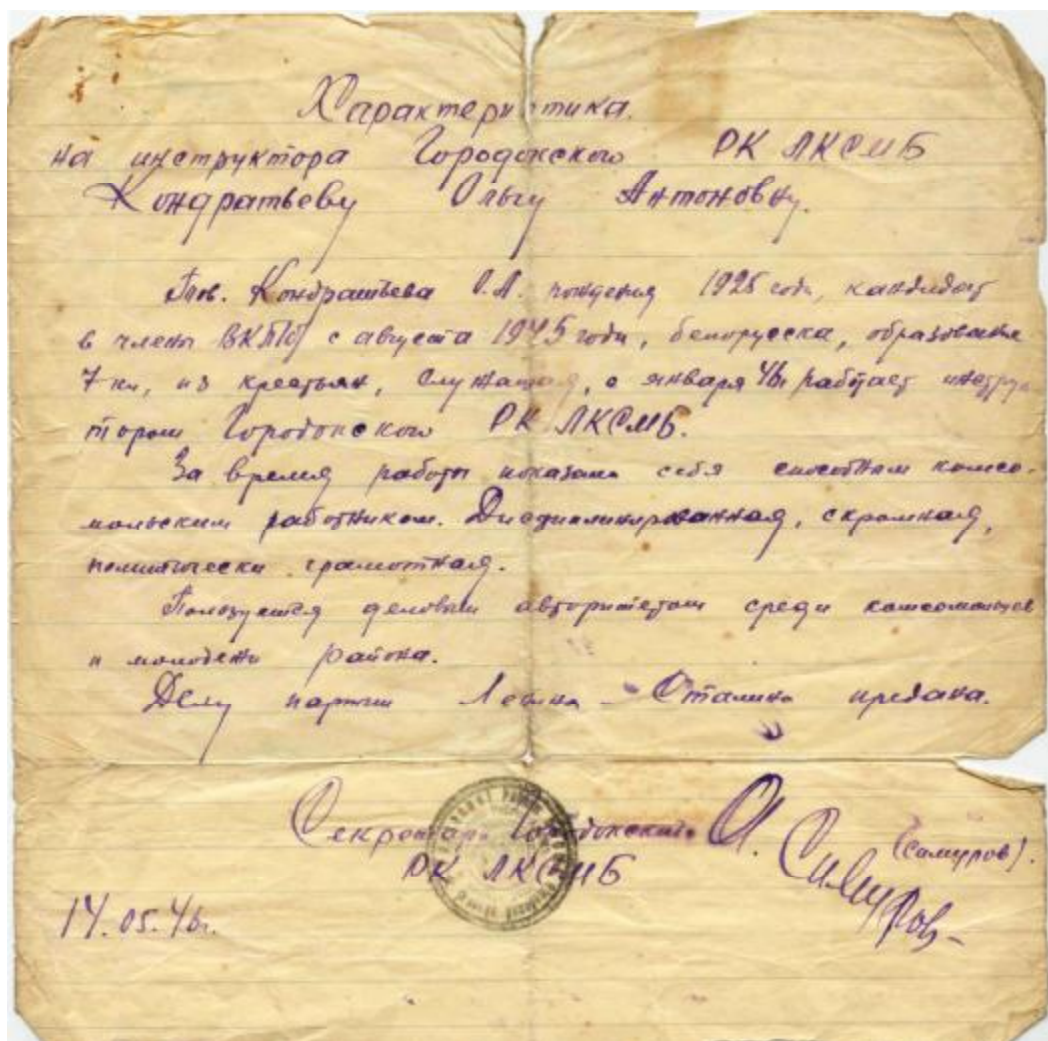 Характеристика.
на инструктора Городокского РК ЛКСМБ
Кондратьеву Ольгу Антоновну.
Тов. Кондратьева О.А. рождения 1925 года, кандидат
в члены ВКП(б) с августа 1945 года, белорусска, образование
7 кл, из крестьян, служащая, с января 46 г. работает инструк
тором Городокского РК ЛКСМБ.
За время работы показала себя способным комсо-
мольским работником. Дисциплинированная, скромная,
политически грамотная.
Пользуется деловым авторитетом среди комсомольцев
и молодежи района.
Делу партии Ленина - Сталина предана.
Секретарь Городокского
РК ЛКСМБ
(Самуров).
14.05.46г.